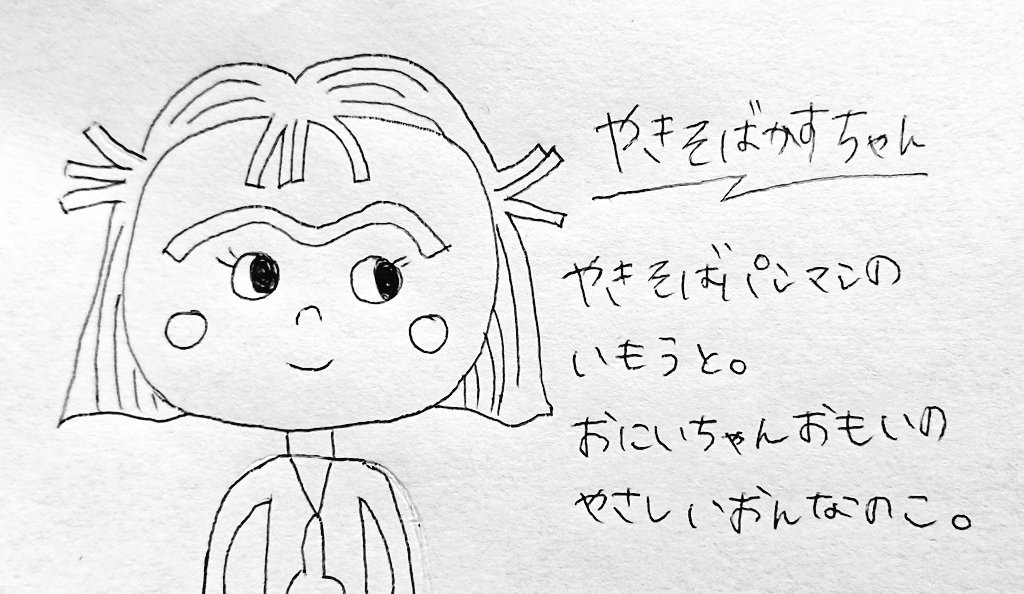 やきそばかすちゃん
やきそばパンマンの
いもうと。
おにいちゃんおもいの
やさしいおんなのこ。